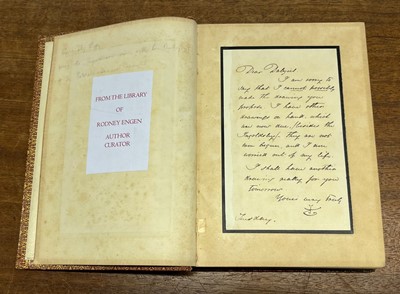 FROM THE LIBRARY
OF
RODNEY ENGEN
AUTHOR
CURATOR
Dear Dalziel
I am sorry to
say that I cannot possibly
make the drawing you
propose. I have other
drawings on hand which
are now due (besides the
Ingoldsby). They are not
even begun, and I am
worried out of my life.
I shall have another
drawing ready for you
tomorrow
Yours very truly
Thursday.